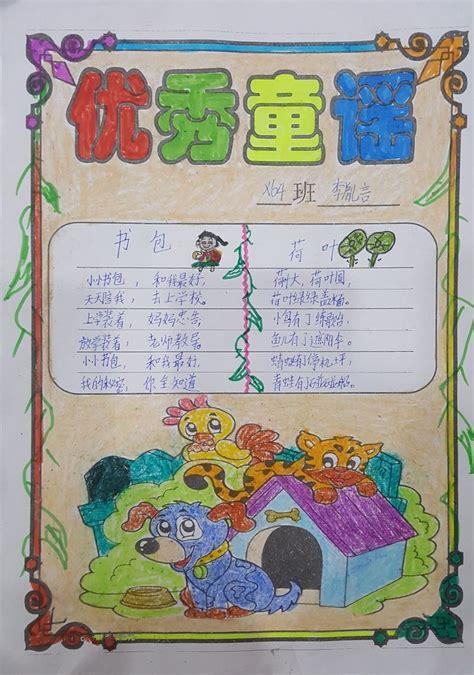 优秀童谣
班
书包
小小书包，和我最好，
天天陪我，去上学校。
上学装着，妈妈忠告，
放学装着，老师教导。
小小书包，和我最好，
我的秘密，你全知道
荷叶
荷叶大，荷叶圆，
荷叶绿绿盖
小鸟有了
鱼儿有了遮阳伞。
蜻蜓有了停机坪，
青蛙有了